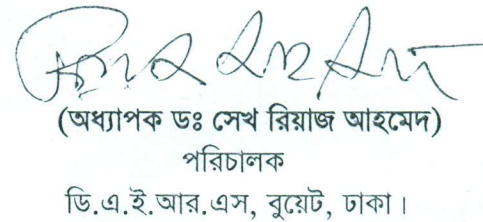 (অধ্যাপক ডঃ সেখ রিয়াজ আহমেদ)
পরিচালক
ডি.এ.ই.আর.এস, বুয়েট, ঢাকা।